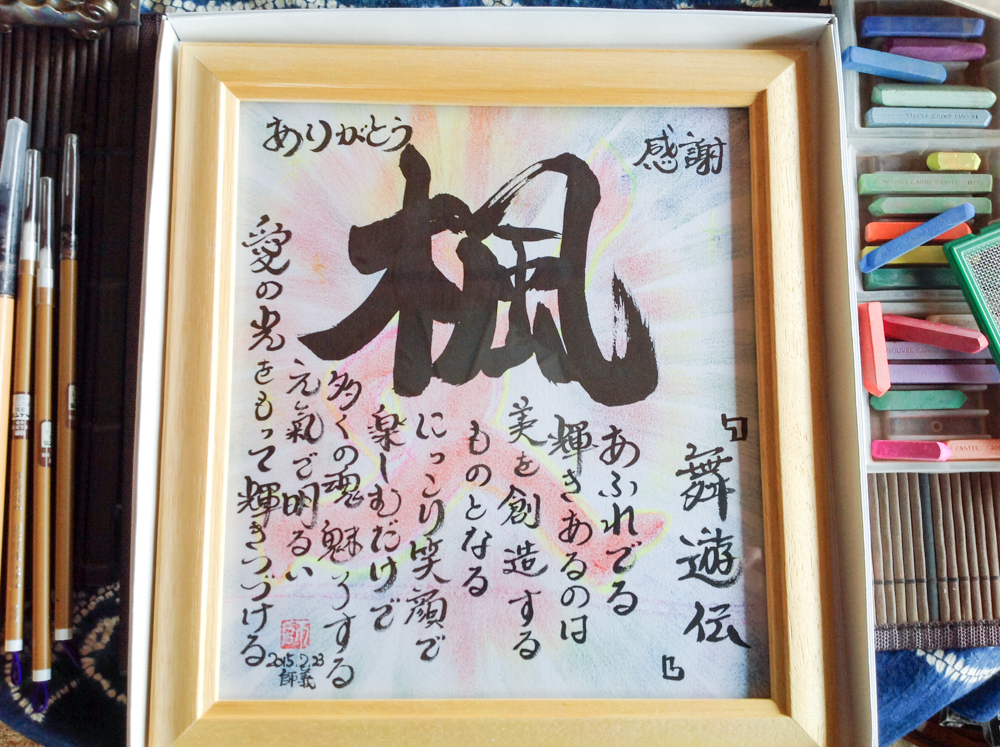 感謝
楓
ありがとう
『舞遊伝』
あふれでる
輝きあるのは
美を創造する
ものとなる
にっこり笑顔で
楽しむだけで
多くの魂魅了する
元氣で明るい
愛の光をもって輝きつづける
師義
PASTEL